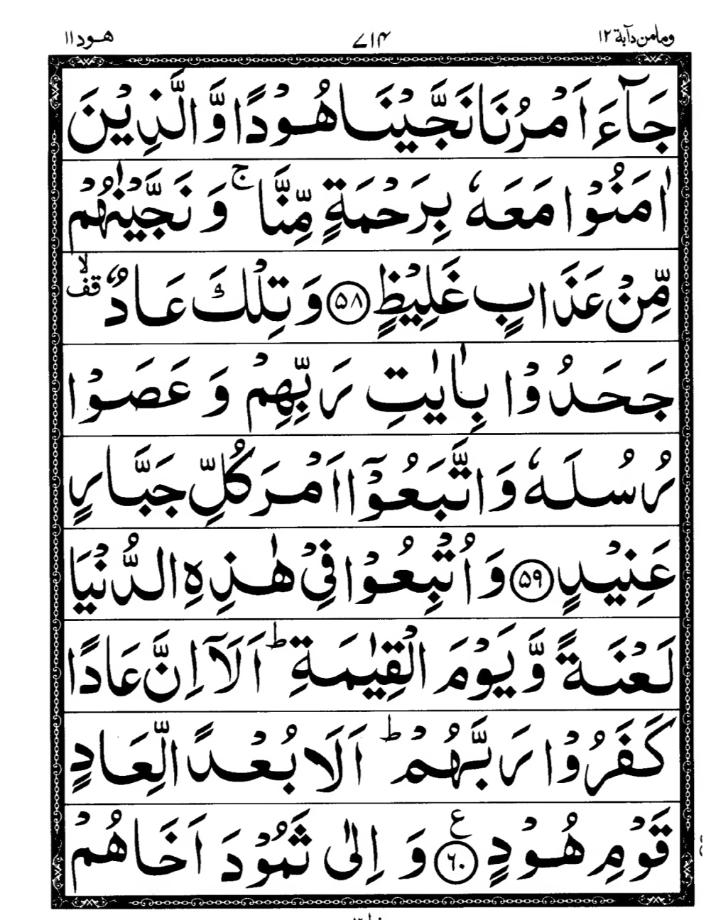 وما من دآبة ۱۲ ۷۱۴ هود ۱۱
جَآءَ اَمْرُنَا نَجَّيْنَا هُوْدًا وَّالَّذِيْنَ
اٰمَنُوْا مَعَهٗ بِرَحْمَةٍ مِّنَّا ۚ وَ نَجَّيْنٰهُمْ
مِّنْ عَذَابٍ غَلِيْظٍ ﴿۵۸﴾ وَ تِلْكَ عَادٌ ۙ قف
جَحَدُوْا بِاٰيٰتِ رَبِّهِمْ وَ عَصَوْا
رُسُلَهٗ وَ اتَّبَعُوْۤا اَمْرَ كُلِّ جَبَّارٍ
عَنِيْدٍ ﴿۵۹﴾ وَ اُتْبِعُوْا فِيْ هٰذِهِ الدُّنْيَا
لَعْنَةً وَّ يَوْمَ الْقِيٰمَةِ ؕ اَلَاۤ اِنَّ عَادًا
كَفَرُوْا رَبَّهُمْ ؕ اَلَا بُعْدًا لِّعَادٍ
قَوْمِ هُوْدٍ ﴿۶۰﴾ ع وَ اِلٰى ثَمُوْدَ اَخَاهُمْ